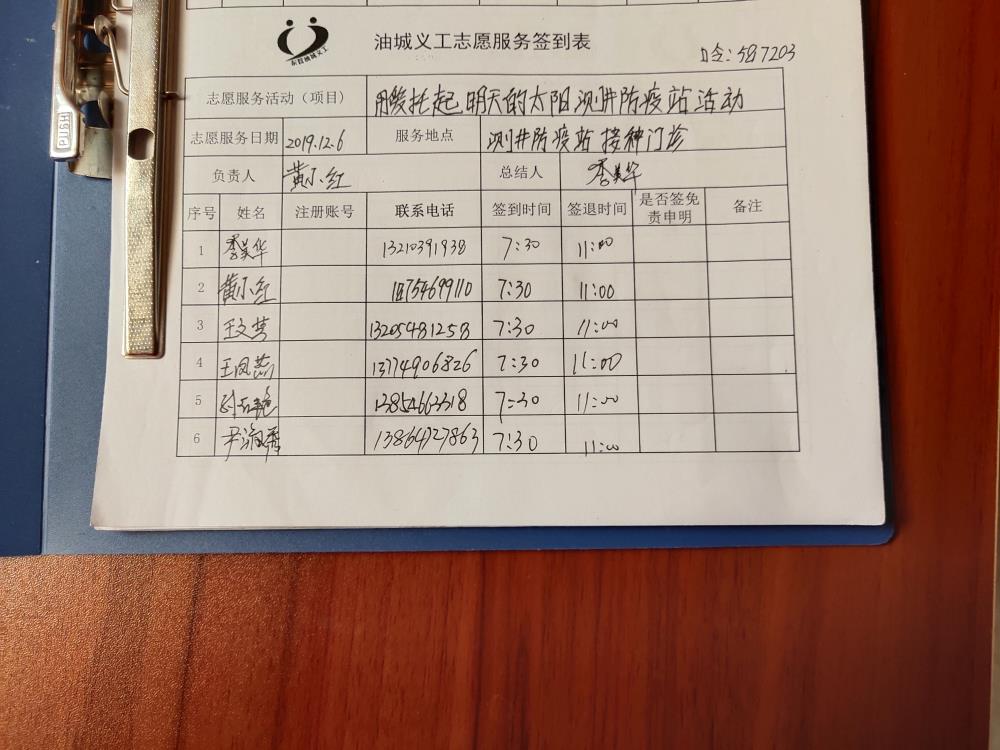 油城义工志愿服务签到表
口令: 587203
东营油城义工
志愿服务活动（项目） 用爱托起明天的太阳测井防疫站活动
志愿服务日期 2019.12.6 服务地点 测井防疫站接种门诊
负责人 黄小红 总结人 李美华
序号 姓名 注册账号 联系电话 签到时间 签退时间 是否签免责申明 备注
1 李美华 13210391938 7:30 11:00
2 黄小红 7:30 11:00
3 王文英 13205481258 7:30 11:00
4 王凤燕 13774906826 7:30 11:00
5 7:30 11:00
6 13864727863 7:30 11:00
PUSH